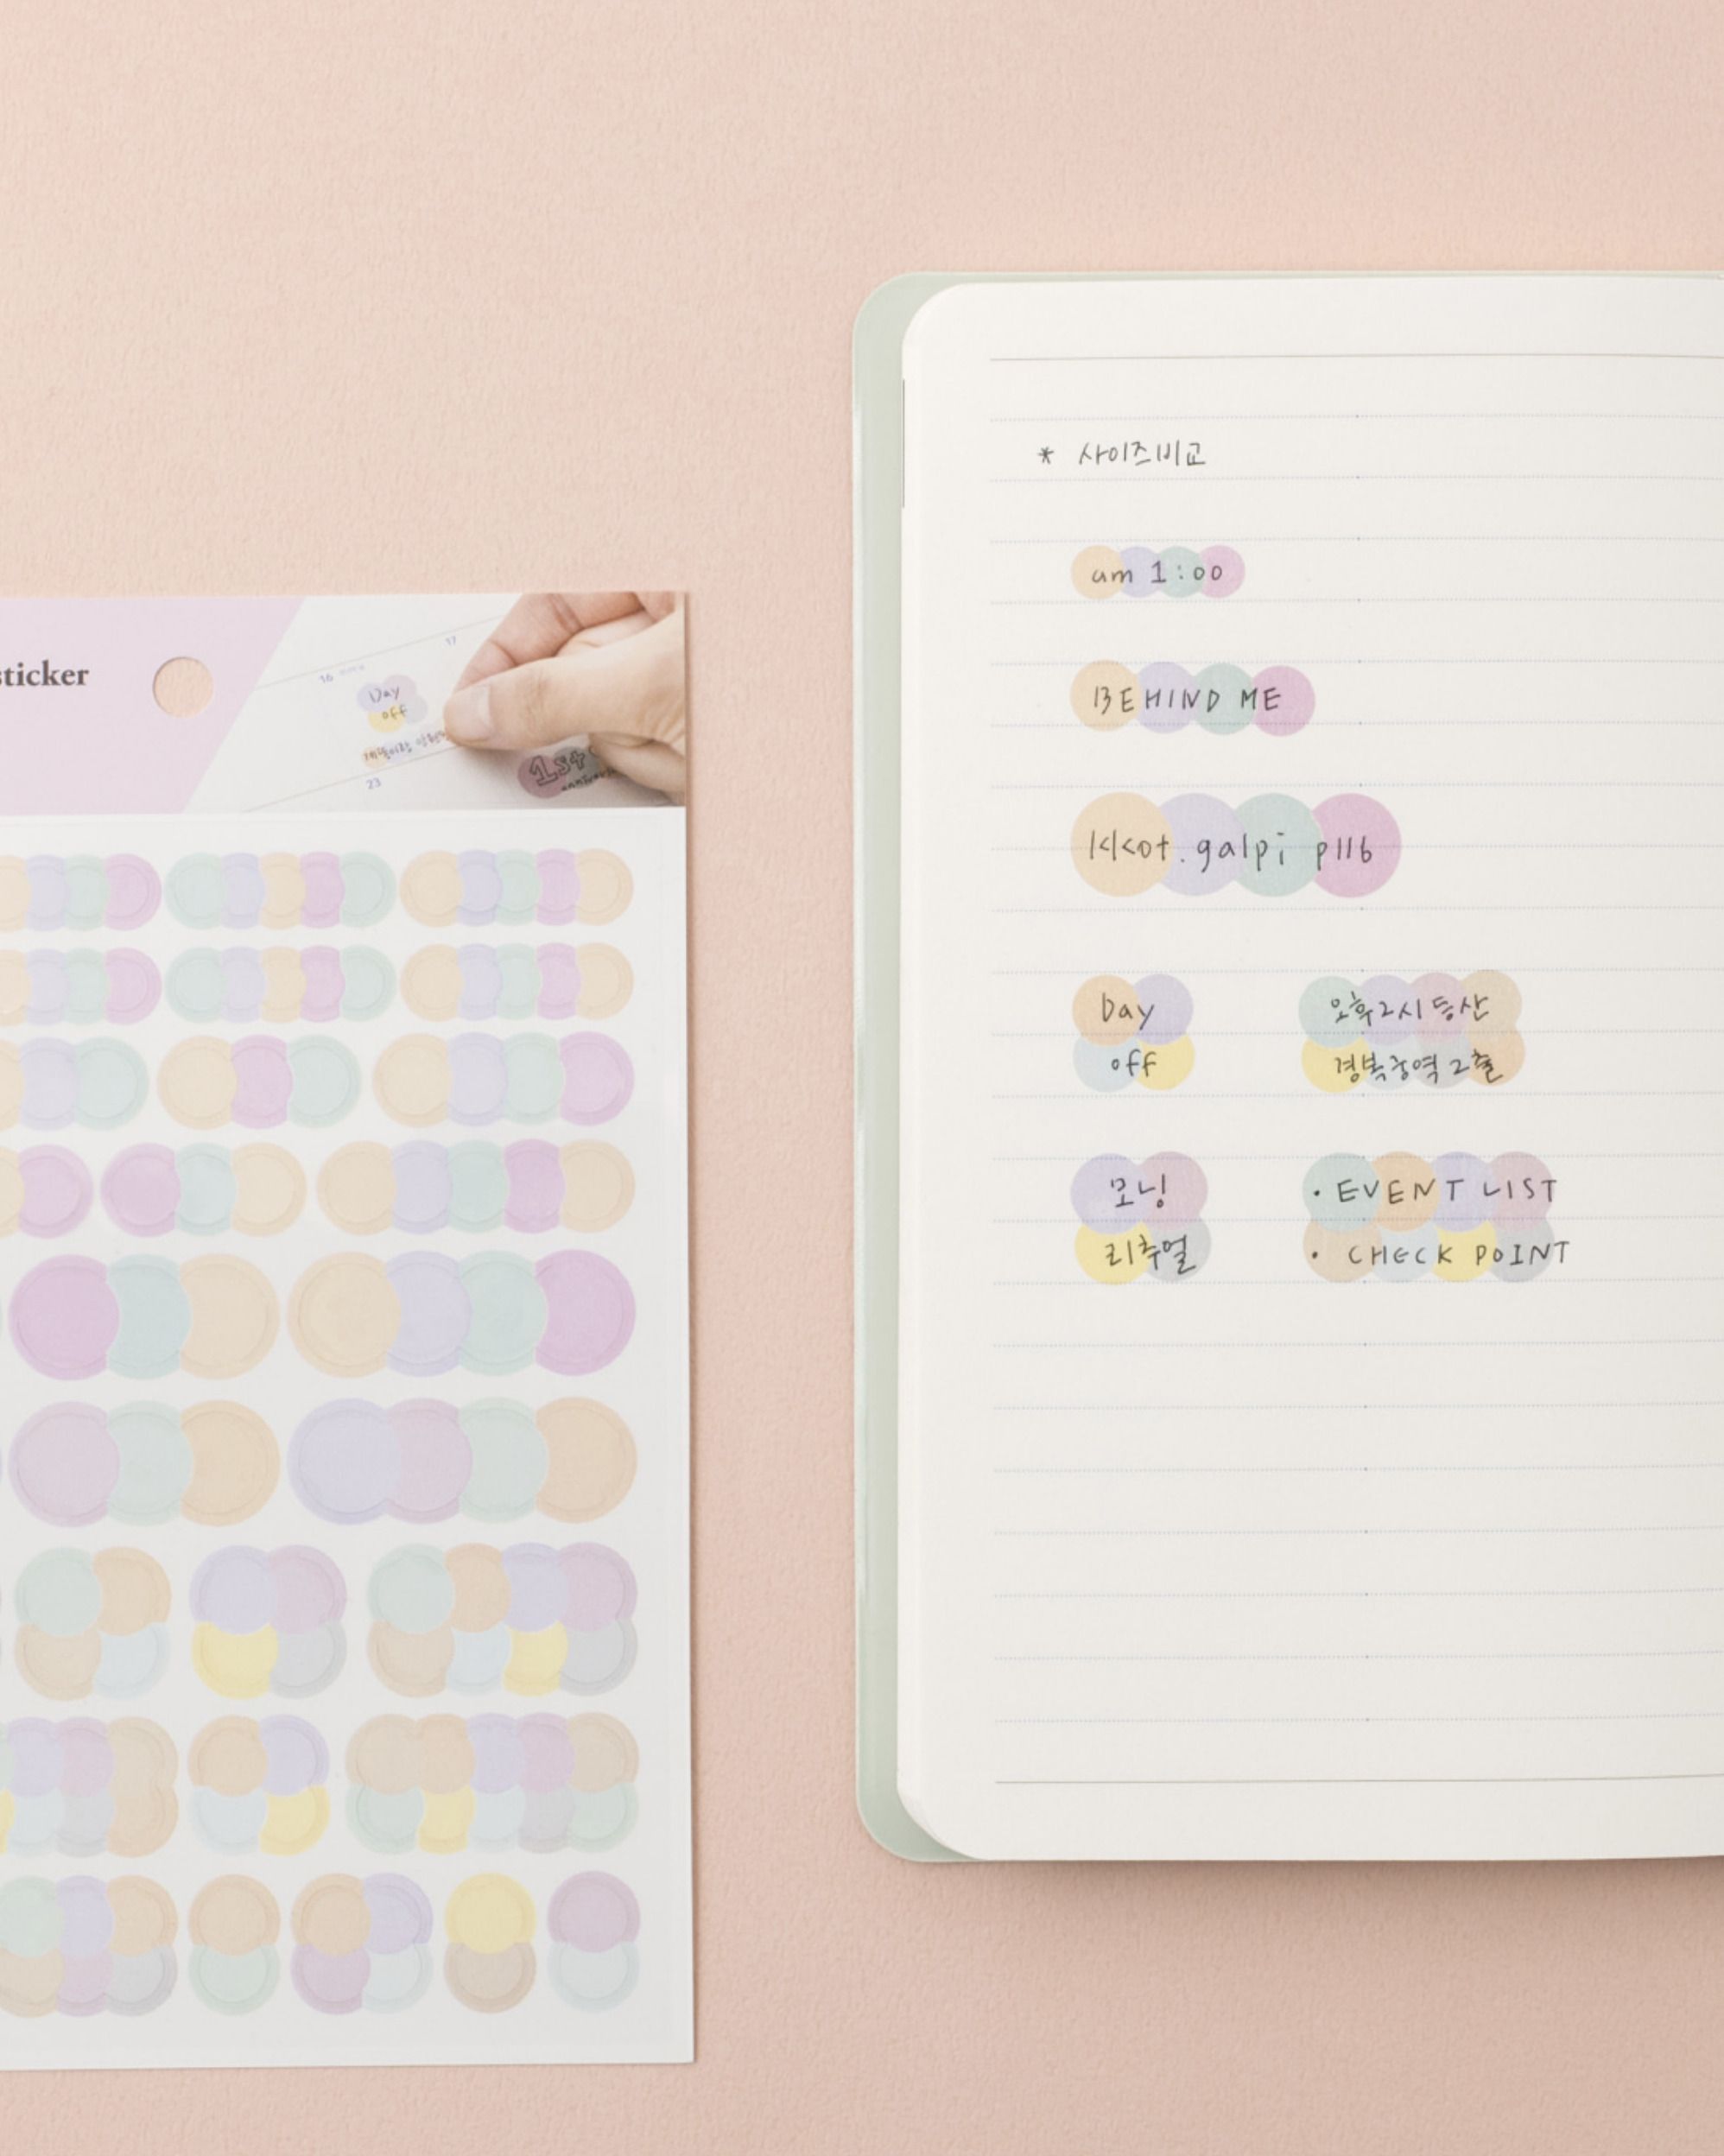 sticker
17
16
Day
off
23
1st
* 사이즈비교
am 1:00
BEHIND ME
kkot.galpi p116
Day
off
오후2시 등산
경복궁역 2출
모닝
리추얼
• EVENT LIST
• CHECK POINT